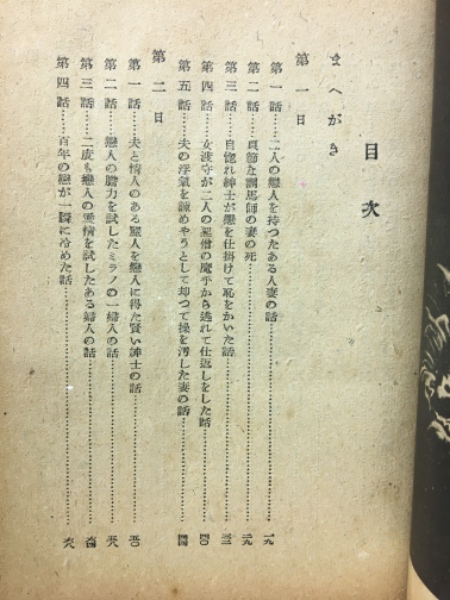 目次
まへがき
第一日
第一話……二人の戀人を持つたある人妻の話……一九
第二話……貞節な調馬師の妻の死……二九
第三話……自惚れ紳士が戀を仕掛けて恥をかいた話……三三
第四話……女渡守が二人の惡僧の魔手から逃れて仕返しをした話……四〇
第五話……夫の浮氣を諫めやうとして却つて操を汚した妻の話……四四
第二日
第一話……夫と情人のある麗人を戀人に得た賢い紳士の話……五〇
第二話……戀人の膽力を試したミラノの一婦人の話……五八
第三話……二度も戀人の愛情を試したある婦人の話……六四
第四話……百年の戀が一瞬に冷めた話……六八